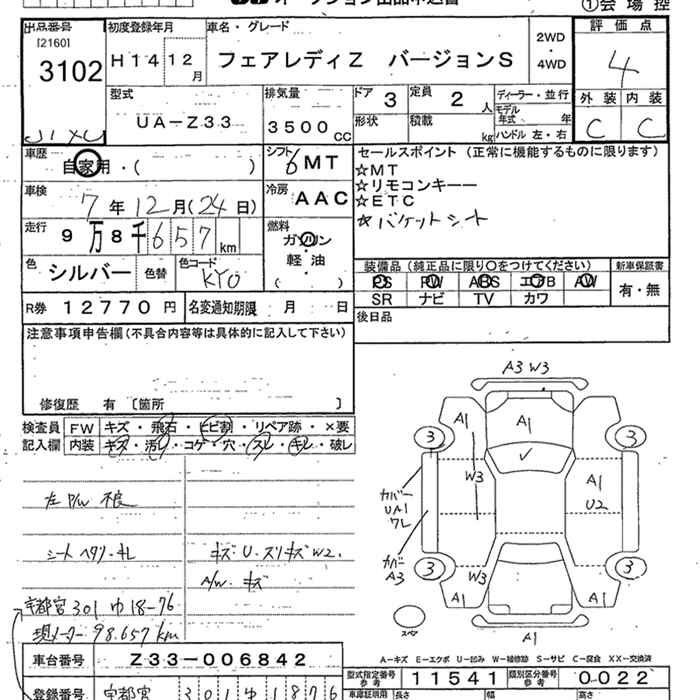 オークション出品申込書
①会場控
出品番号 初度登録年月 車名・グレード 評価点
[2160]
3102 H14 12月 フェアレディZ バージョンS 2WD・4WD 4
型式 排気量 ドア 3 定員 2人 ディーラー・並行 外装 内装
UA-Z33 3500CC 形状 積載 kg モデル年式 年 C C
ハンドル 左・右
車歴 自家用・( ) シフト 6MT セールスポイント (正常に機能するものに限ります)
☆MT
車検 7年12月(24日) 冷房 AAC ☆リモコンキーー
☆ETC
走行 9万8千657km 燃料 ガソリン 軽油 ( ) ☆バケットシート
色 シルバー 色替 色コード KY0
装備品 (純正品に限り○をつけてください) 新車保証書
PS PW ABS エアB AW 有・無
SR ナビ TV カワ
R券 12770円 名変通知期限 月 日
後日品
注意事項申告欄 (不具合内容等は具体的に記入して下さい)
修復歴 有 〔箇所 〕
検査員記入欄 FW キズ・飛石・ヒビ割・リペア跡・×要
内装 キズ・汚レ・コゲ・穴・スレ・キレ・破レ
左P/W 不良
シート ヘタリ・キレ キズ・U・ズリキズW2.
A/W・キズ
宇都宮 301 ゆ 18-76
現メーター 98.657km
A3 W3
A1 A1
3 3
W3 A1
U2
カバー
UA1
ワレ
カバー
A3
3 3
W3
A1 A1
スペア
A1
A−キズ E−エクボ U−凹み W−補修跡 S−サビ C−腐食 XX−交換済
車台番号 Z33-006842 型式指定番号 参考 11541 類別区分番号 参考 0022
登録番号 宇都宮 301 ゆ 1876 車庫証明用 長さ 幅 高さ